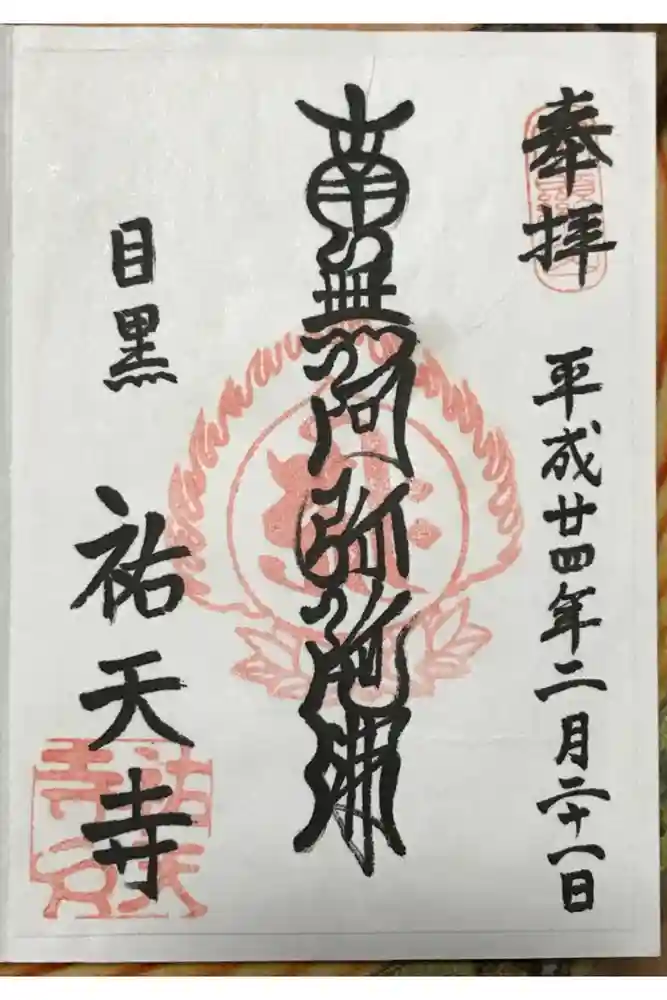 奉拝
平成廿四年二月二十一日
南無阿弥陀佛
目黒
祐天寺